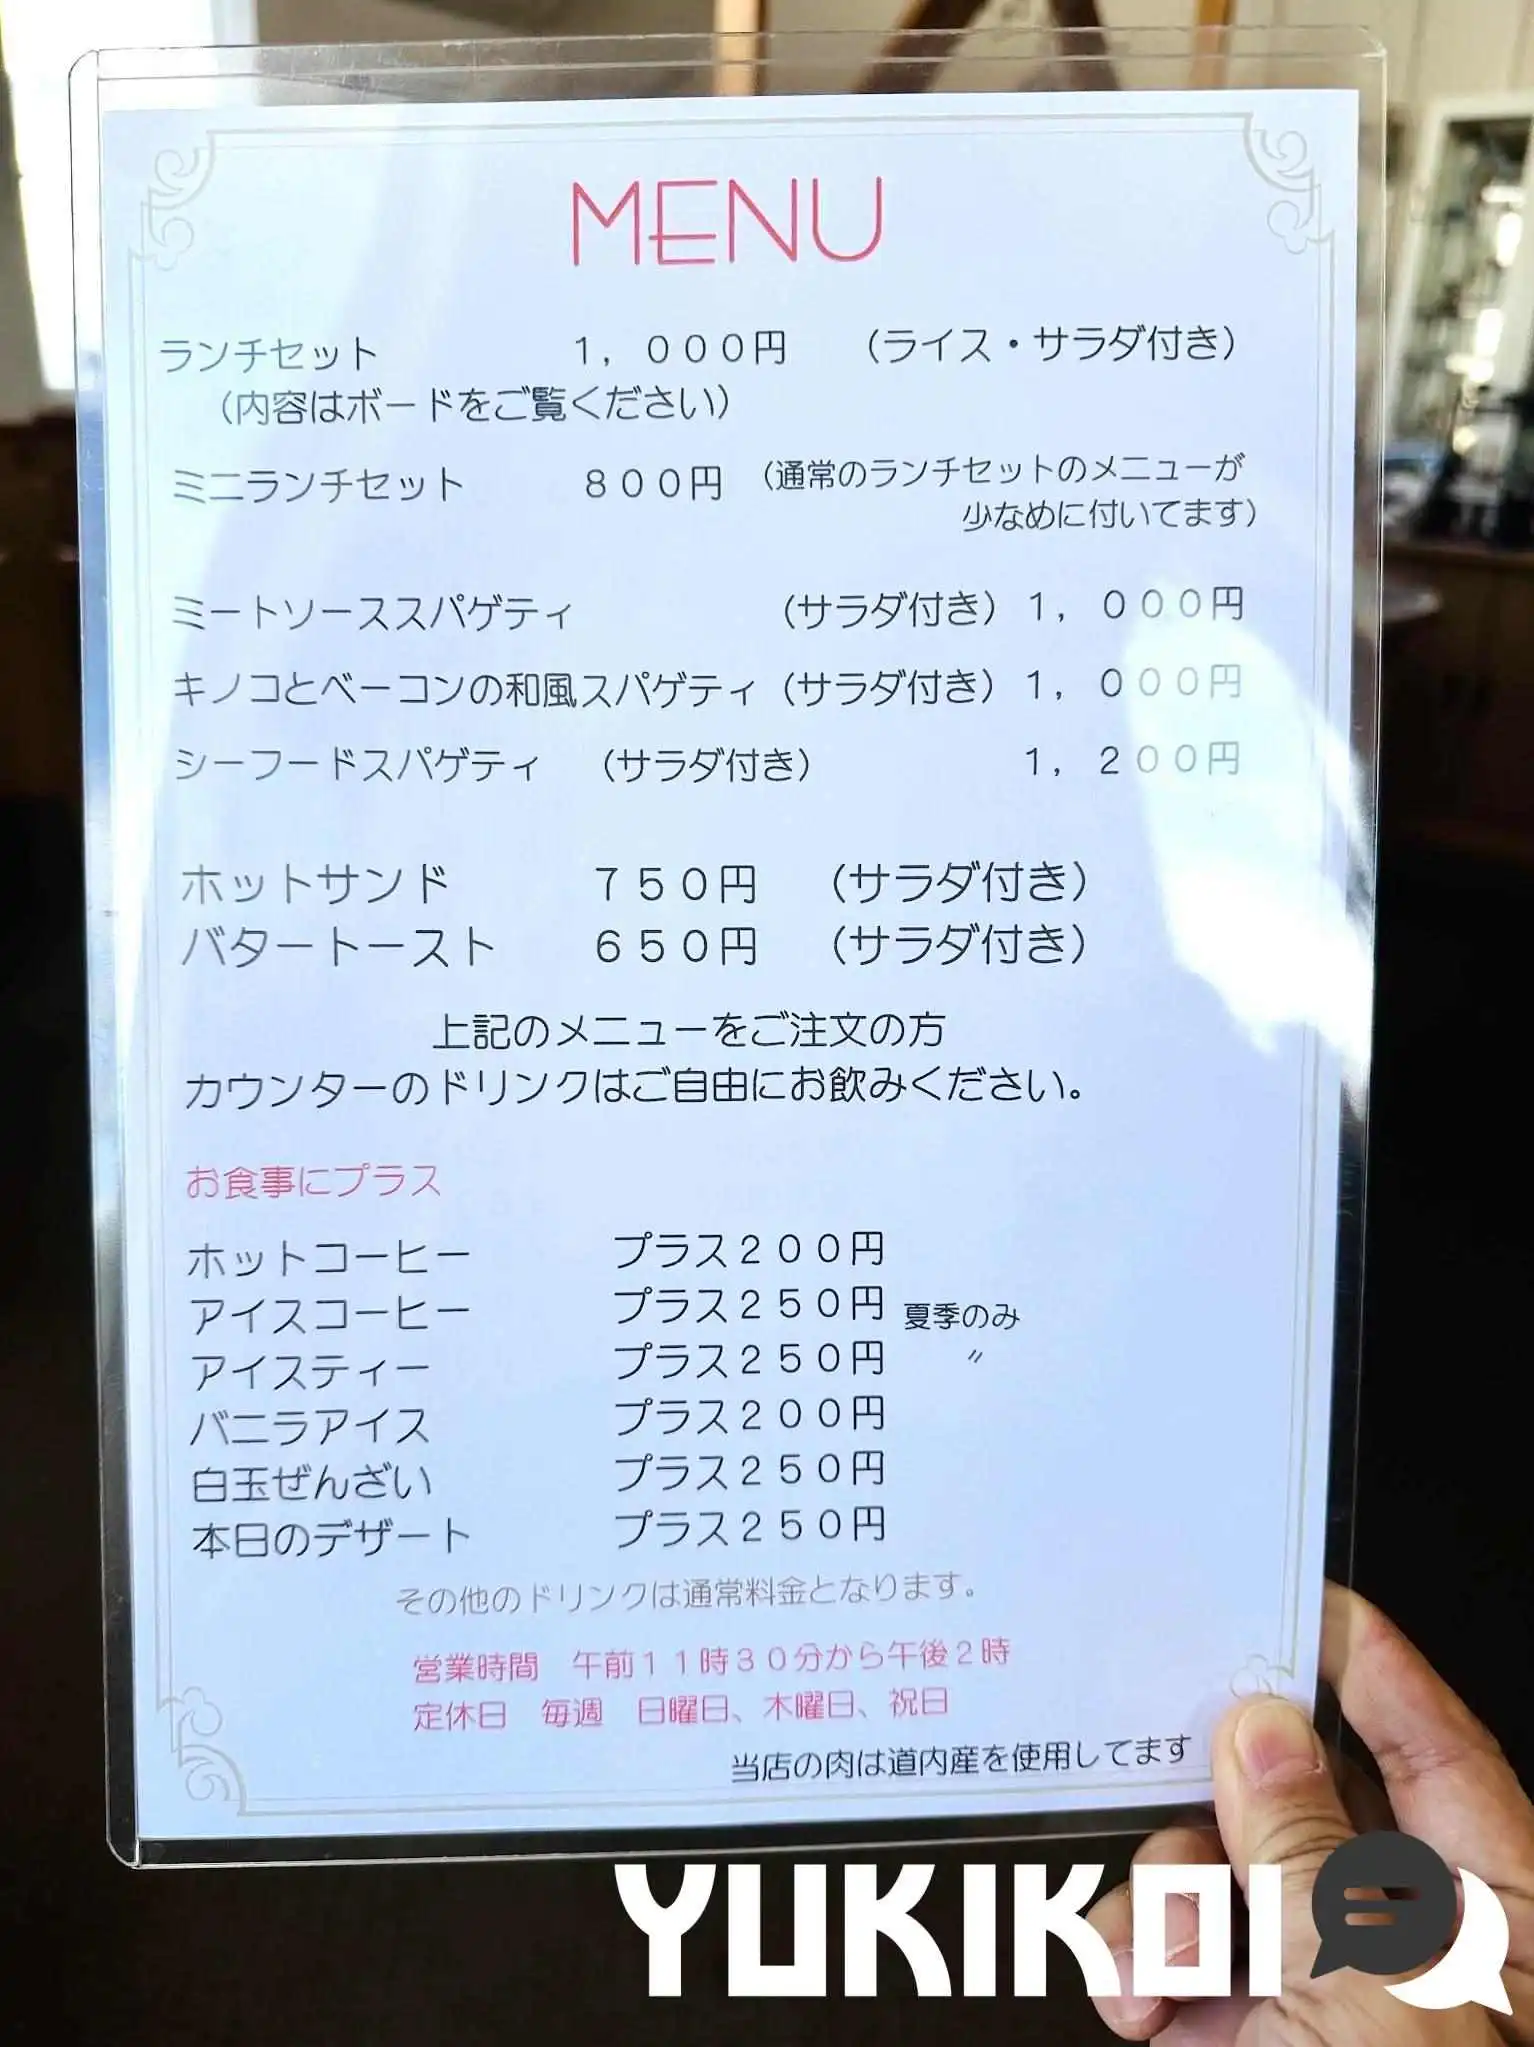 MENU
ランチセット 1，000円 （ライス・サラダ付き）
（内容はボードをご覧ください）
ミニランチセット 800円 （通常のランチセットのメニューが
少なめに付いてます）
ミートソーススパゲティ （サラダ付き）1，000円
キノコとベーコンの和風スパゲティ（サラダ付き）1，000円
シーフードスパゲティ （サラダ付き） 1，200円
ホットサンド 750円 （サラダ付き）
バタートースト 650円 （サラダ付き）
上記のメニューをご注文の方
カウンターのドリンクはご自由にお飲みください。
お食事にプラス
ホットコーヒー プラス200円
アイスコーヒー プラス250円 夏季のみ
アイスティー プラス250円 〃
バニラアイス プラス200円
白玉ぜんざい プラス250円
本日のデザート プラス250円
その他のドリンクは通常料金となります。
営業時間 午前11時30分から午後2時
定休日 毎週 日曜日、木曜日、祝日
当店の肉は道内産を使用してます
YUKIKOI